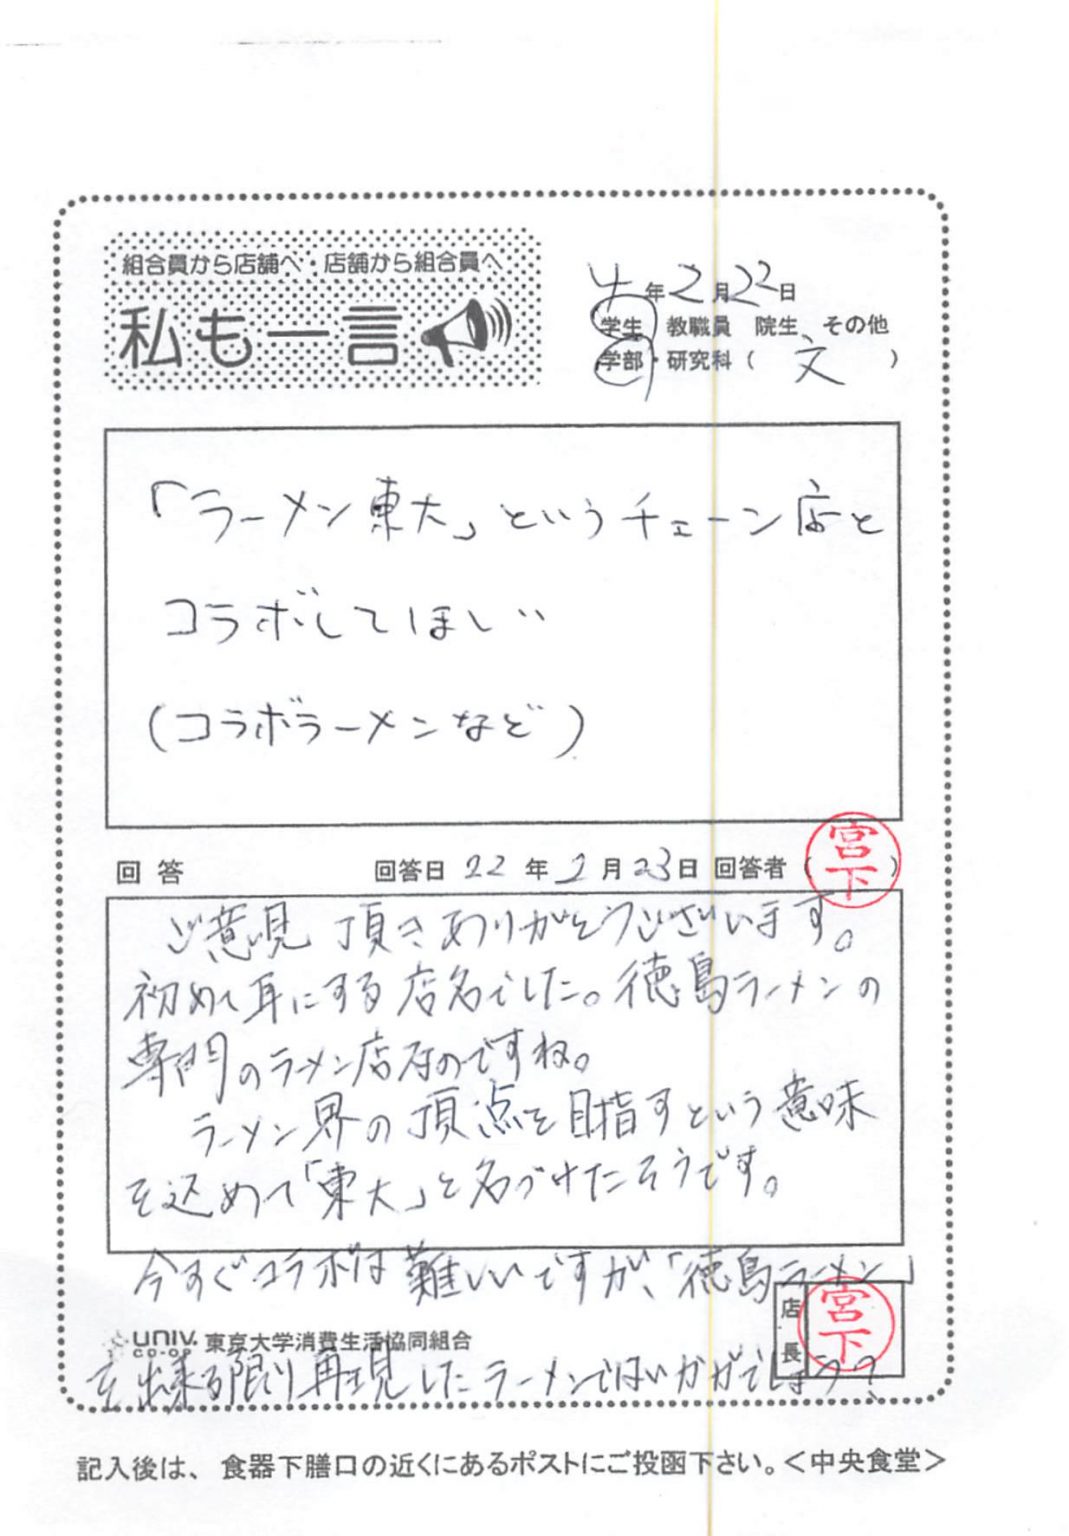 組合員から店舗へ・店舗から組合員へ
私も一言
4年2月22日
学生 教職員 院生 その他
学部・研究科（ 文 ）
「ラーメン東大」というチェーン店と
コラボしてほしい
(コラボラーメンなど)
回答 回答日 22年2月23日 回答者（宮下）
ご意見頂きありがとうございます。
初めて耳にする店名でした。徳島ラーメンの
専門のラーメン店なのですね。
ラーメン界の頂点を目指すという意味
を込めて「東大」と名づけたそうです。
今すぐコラボは難しいですが、「徳島ラーメン」
店長 宮下
univ. CO-OP 東京大学消費生活協同組合
を出来る限り再現したラーメンではいかがでしょう？
記入後は、食器下膳口の近くにあるポストにご投函下さい。＜中央食堂＞